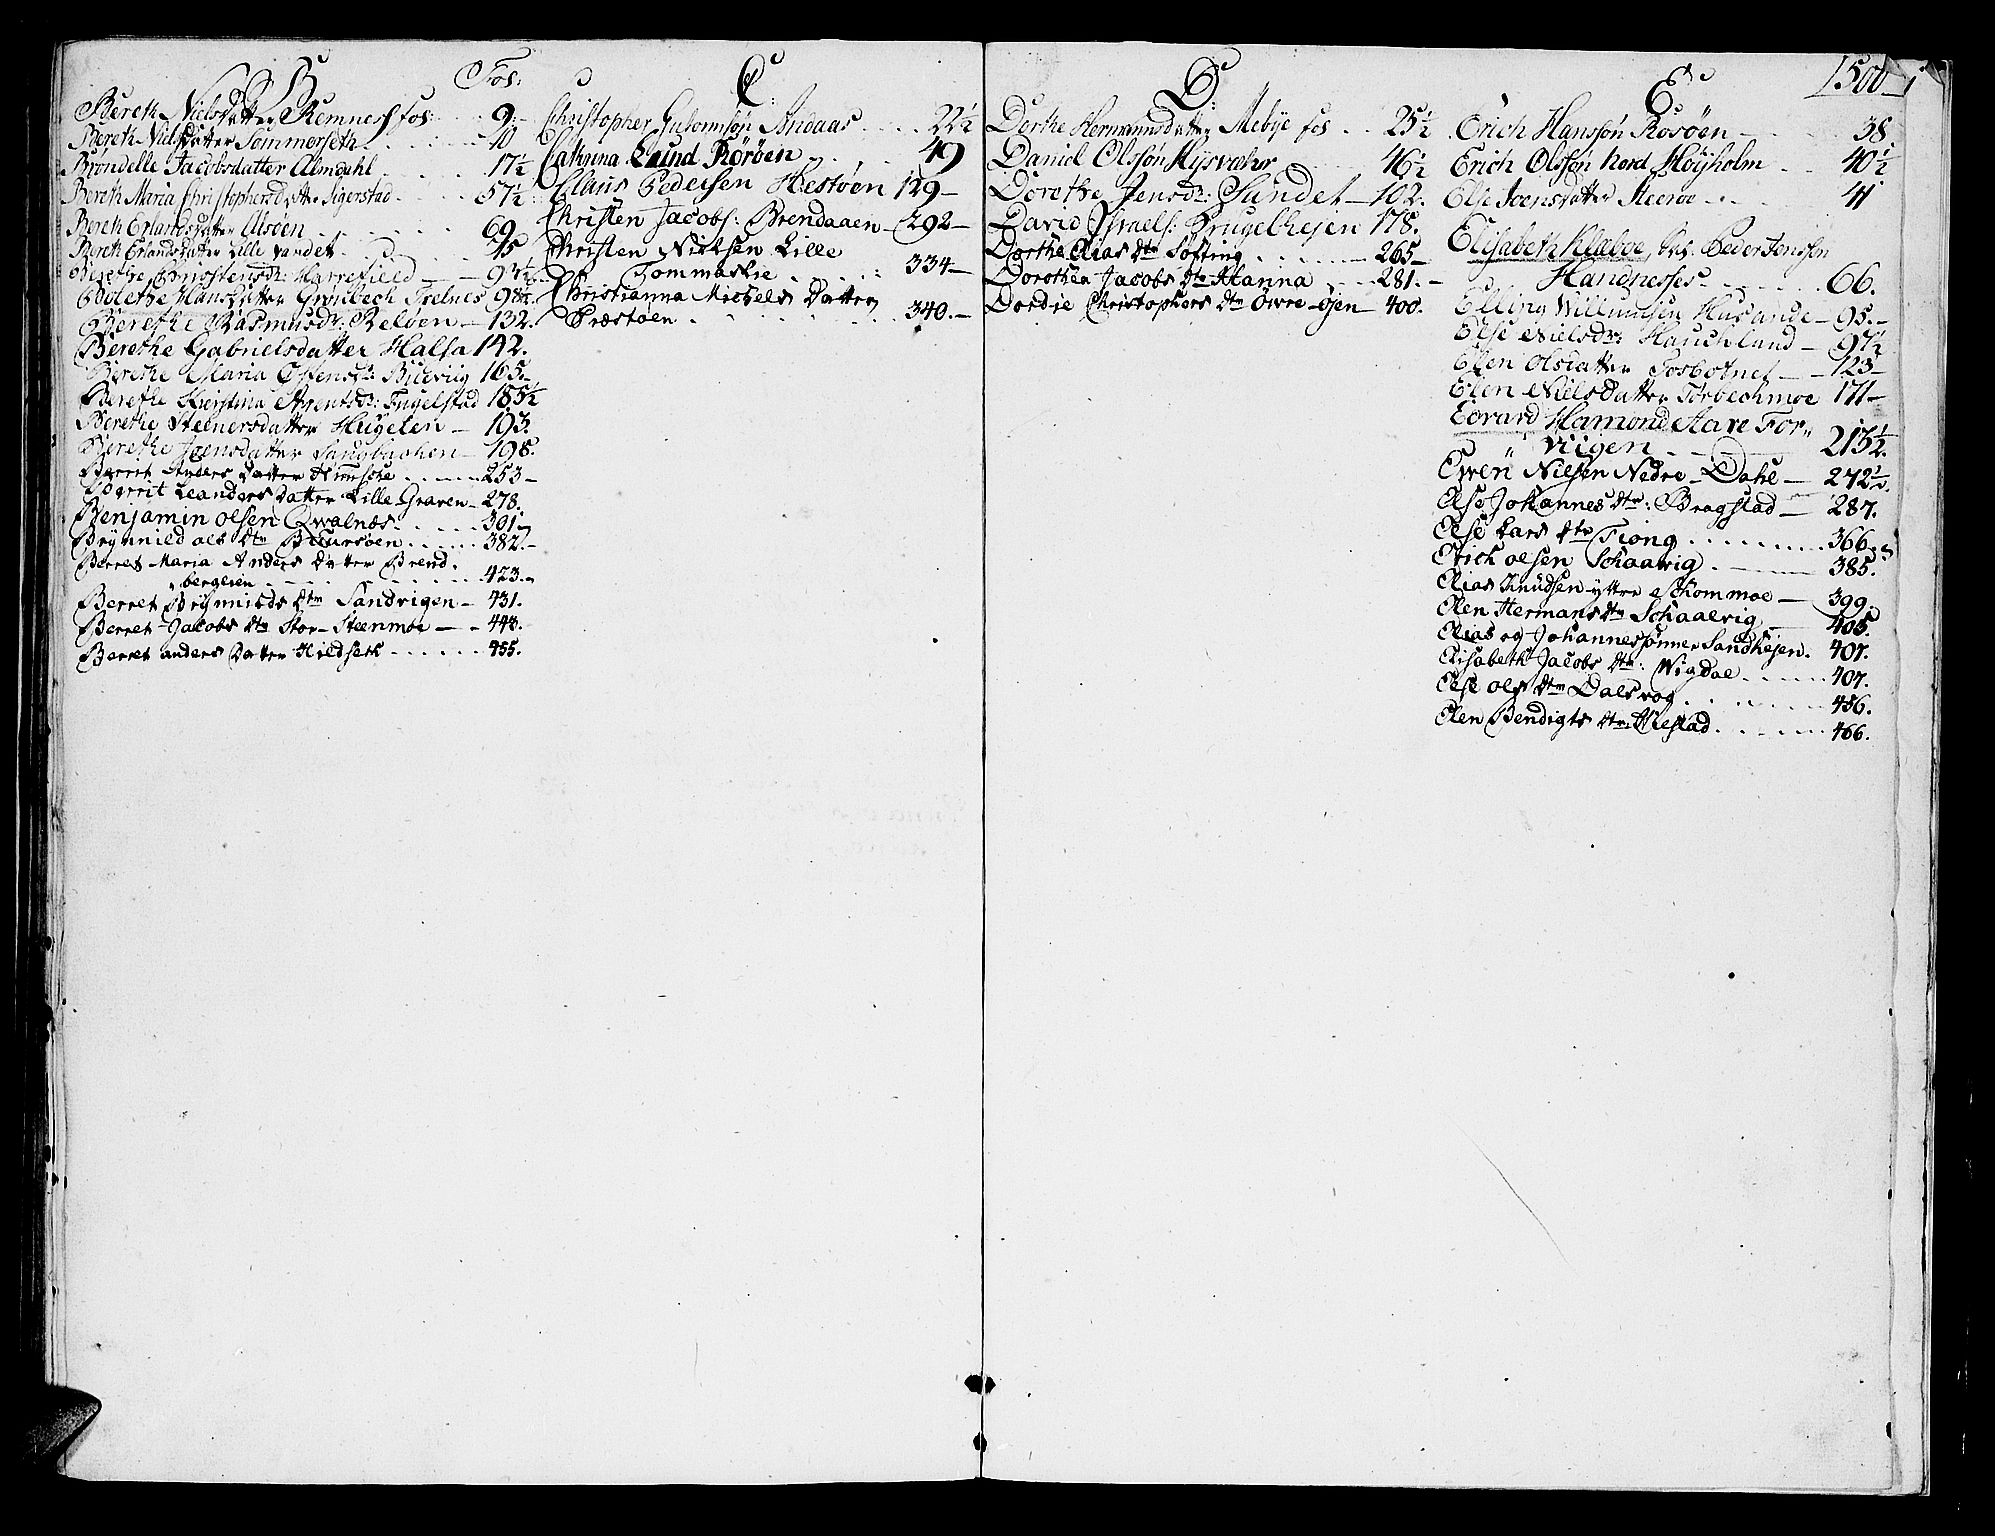 B
Fos:
Bereth Nielsdatter Remnes fos: 9.
Bereth Nielsdatter Sommerseth 10
Brøndelle Jacobsdatter Almdahl 17½
Bereth Maria Christophersdatter Sigerstad 57½
Bereth Erlandsdatter Alsøen 69
Bereth Erlandsdatter Lille Vandet 75
Berethe 97½
Bolethe Hansdatter Grønbech Tielnes 98½
Berethe Rasmusdr: Beløen 132.
Berethe Gabrielsdatter Halsa 142.
Berethe Maria 165.
Berethe Kierstina Arentsdr: Tugelstad 185½
Berethe Steenersdatter Hugelen 193.
Berethe Joensdatter Saugbachen 198.
Berrit Anders Datter 253
Berrit Leanders Datter Lille Graven 278.
Benjamin Olsen Qvalnæs 301
Brynnild Ols dtr 382.
Berret Maria Anders Datter Brend-
bergeien 423.
Berret Brynnilds dtr Sandvigen 431.
Berret Jacobs dtr Stor-Steenmoe 443.
Berret Anders Datter Hildseth 455.
C:
Christopher Guttormsøn Andaas 22½
Cathrina Lund Rørøen 49
Claus Pedersen Hestøen 129
Christen Jacobs: Brendaaen 292
Christen Nielsen Lille
Tommaskie 334
Christianna Michels Datter
Træstøen 340.
D:
Dorthe Hermannsdatter Mebye fos 25½
Daniel Olssøn Hysvær 46½
Dorothe Jensdr: Sundet 102.
David Israels: Krugelhejen 178.
Dorthe Elias dtr Søfting 265
Dorothea Jacobs dtr Hanna 281.
Dordie Christophers dtr Øvre-Øjen 400.
E
1500
Erich Hanssøn Rosøen 38
Erich Olssøn Nord Høyholm 40½
Else Joensdatter Heeroe 41
Elisabeth Klæboe, Peder Jenssøn
Handnesses 66.
Elling Willumsen Husande 95.
Else Nielsdr: Hauchland 97½
Elen Olsdatter Tosbotnet 123
Elen Nielsdatter Torbechmoe 171
Edvard Hamond Aare For-
viigen 213½
Ewen Nielsen Nedre-Dahl 242½.
Else Johannes dtr: Bragstad 287.
Else Lars dtr Fiong 366.
Erich Olsen Schaarvig 385.
Elias Knudsen ytre Schommoe 399.
Elen Hermans dtr Schaalvig 405.
Elias og Johannes sønner Sandhejen. 407.
Elisabeth Jacobs dtr: Wigdal 407.
Else Ols dtr Dalsvog 456.
Elen Bendigts dtr: 466.